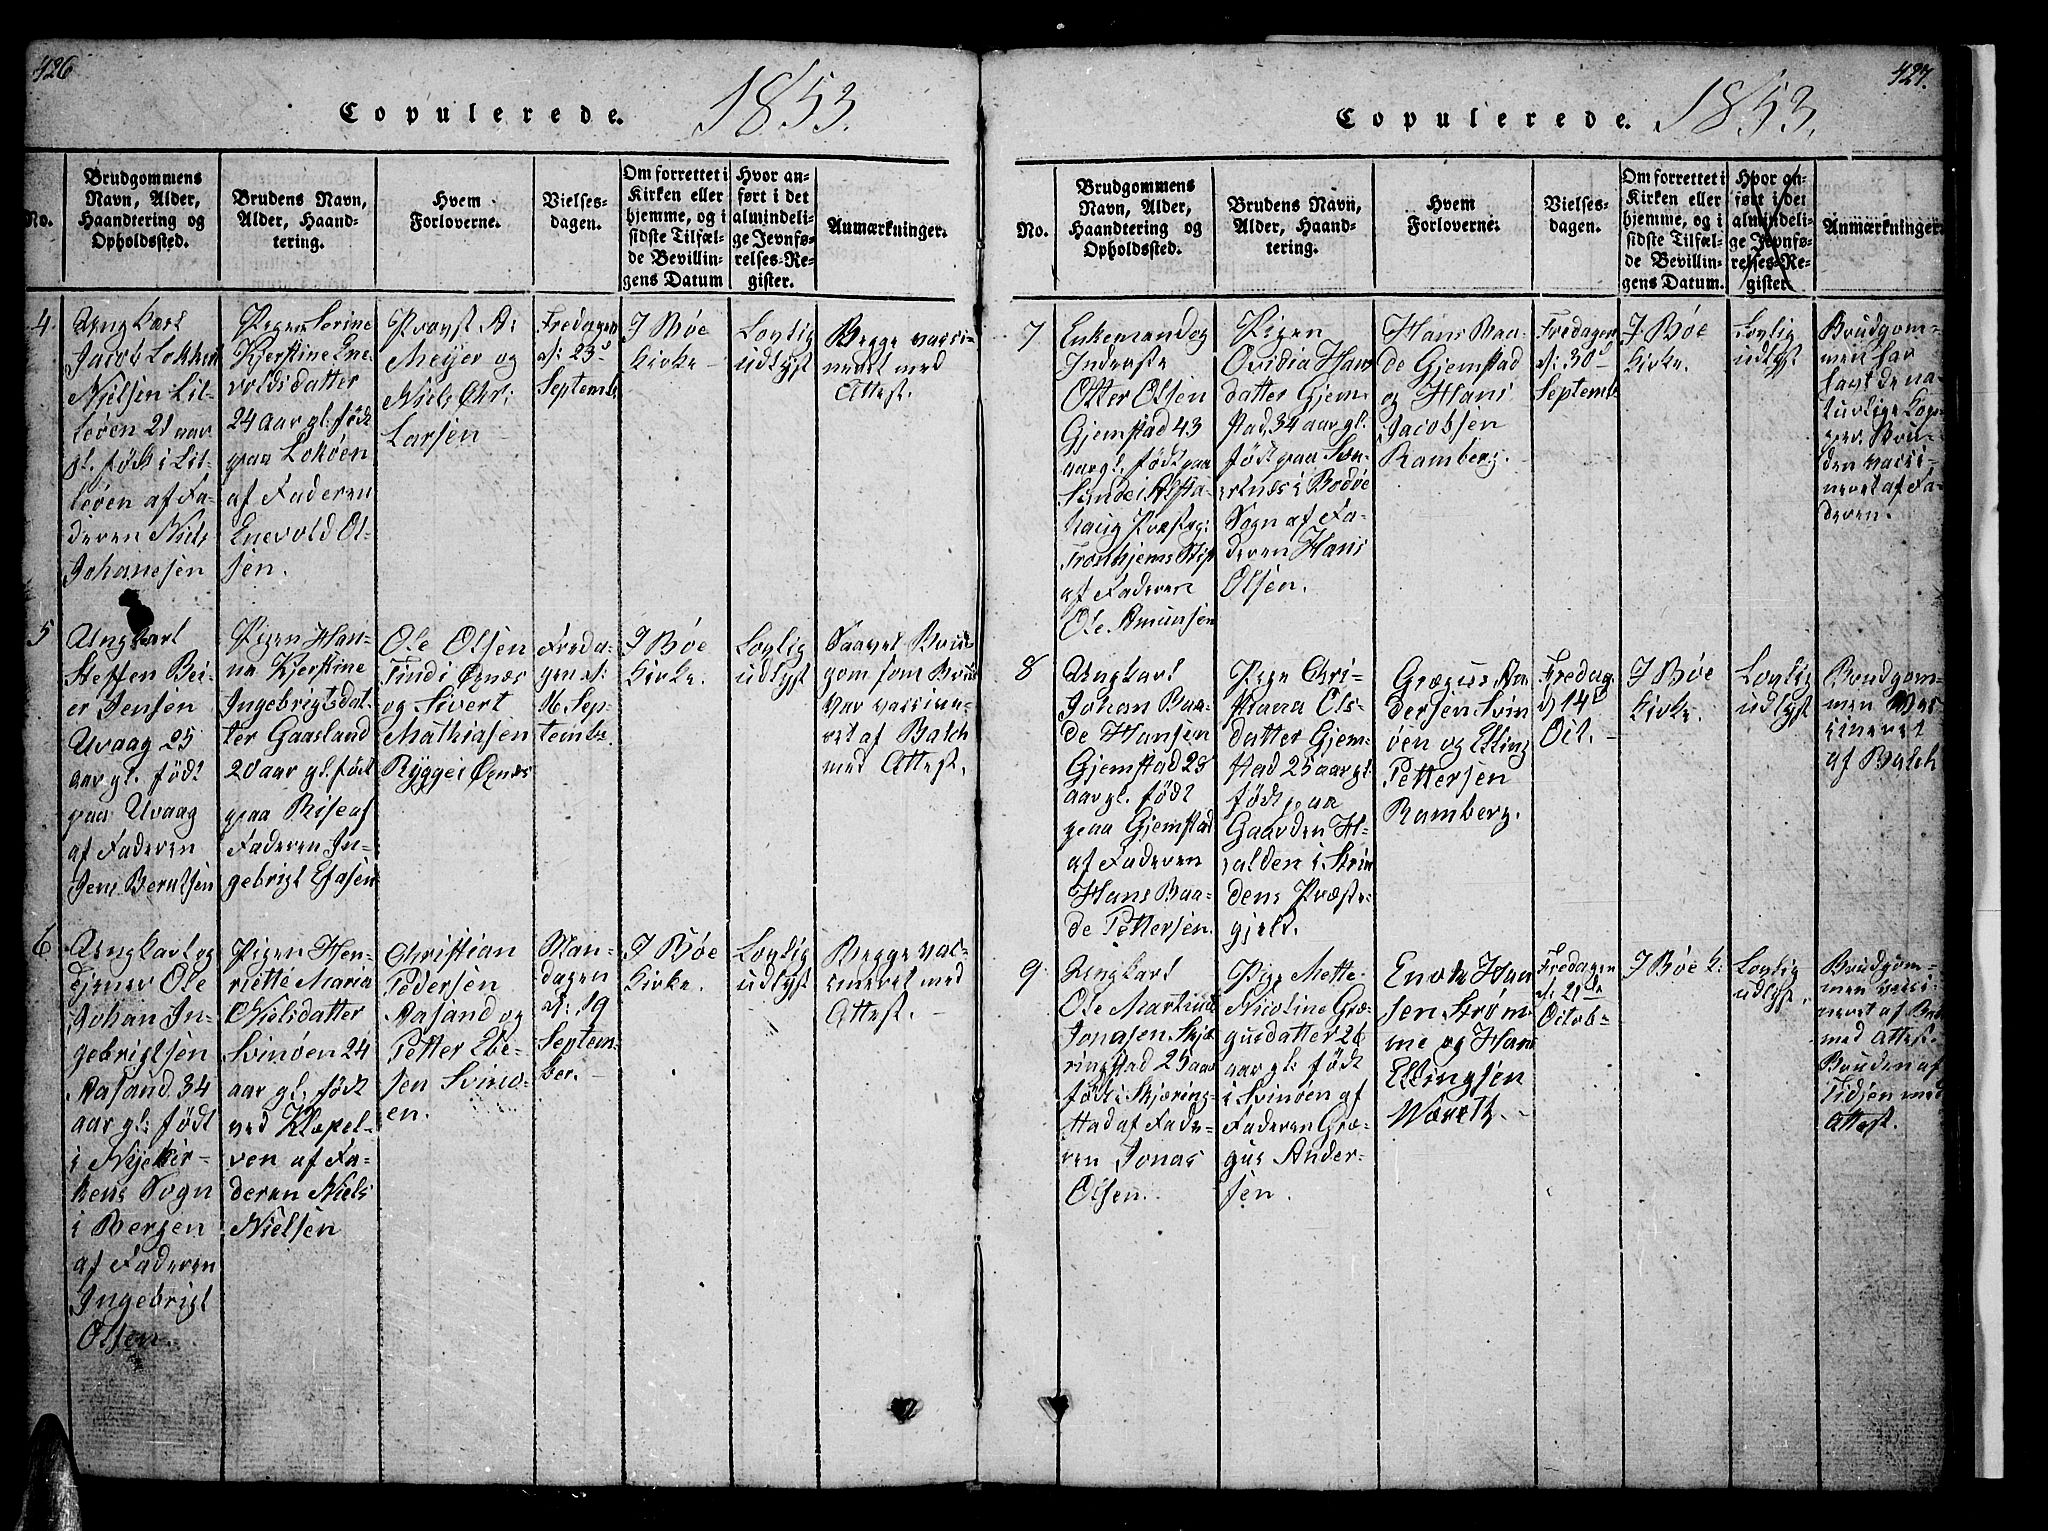 426
Copulerede. 1853.
No.
Brudgommens
Navn, Alder,
Haandtering og
Opholdssted.
Brudens Navn,
Alder, Haand-
tering.
Hvem
Forloverne.
Vielses-
dagen.
Om forrettet i
Kirken eller
hjemme, og i
sidste Tilfæl-
de Bevillin-
gens Datum
Hvor an-
ført i det
almindeli-
ge Jevnfø-
relses-Re-
gister.
Anmærkninger.
4
Ungkarl
Jacob Lokken
Nielsen Lil-
leøen 21 aar
gl. født i Lil-
leøen af Fa-
deren Niels
Johanesen
Pigen Serine
Kjerstine Ene-
voldsdatter
24 aar gl. født
paa Lokøen
af Faderen
Enevold Ol-
sen.
Provst A:
Meyer og
Niels Chr:
Larsen
Fredagen
d: 23d
Septemb
I Bøe
Kirke
Lovlig
udlyst
Begge vacci-
neret med
Attest.
5
Ungkarl
Steffen Bei-
er Jensen
Uvaag 25
aar gl. født
paa Uvaag
af Faderen
Jens Berntsen
Pigen Han-
na Kjerstine
Ingebrigtsdat-
ter Gaasland
20 aar gl. født
paa Rise af
Faderen In-
gebrigt Esasen
Ole Olsen
Find i Øxnæs
og Sivert
Mathiasen
Rygge i Øxnæs
Freda-
gen d:
16 Sep-
tembr.
I Bøe
Kirke.
Lovlig
udlyst
Saavel Brud
gom som Brud
var vaccine-
ret af Balch
med Attest.
6
Ungkarl og
Tjener Ole
Johan In-
gebrigtsen
Aasand 34
aar gl: født
i Nykir-
kens Sogn
i Bergen
af Faderen
Ingebrigt
Olsen.
Pigen Hen-
riette Maria
Nielsdatter
Svinøen 24
aar gl: født
ved Klæpel-
ven af Fa-
deren Niels
Nielsen
Christian
Pedersen
Aasand og
Petter Ebe-
sen Svinø-
en.
Man-
dagen
d: 19
Septem-
ber.
I Bøe
Kirke.
Lovlig
udlyst
Begge vac-
cineret med
Attest.
427.
Copulerede. 1853.
No.
Brudgommens
Navn, Alder,
Haandtering og
Opholdssted.
Brudens Navn,
Alder, Haand-
tering.
Hvem
Forloverne.
Vielses-
dagen.
Om forrettet i
Kirken eller
hjemme, og i
sidste Tilfæl-
de Bevillin-
gens Datum.
Hvor an-
ført i det
almindeli-
ge Jevnfø-
relses-Re-
gister
Anmærkninger.
7
Enkemand og
Inderste
Otter Olsen
Gjemstad 43
aar gl. født paa
Sunde i Alsta-
haug Præsteg:
Tronhjems Stift
af Faderen
Ole Amunsen
Pigen
Ovidia Hans
datter Gjem-
stad, 34 aar gl.
født paa
i Bodøe
Sogn af Fa-
deren Hans
Olsen.
Hans Baa-
de Gjemstad
og Hans
Jacobsen
Ramberg.
Fredagen
d: 30
Septemb
I Bøe
Kirke.
Lovlig
udlyst
Brudgom-
men har
havt de na-
turlige Kop-
per. Bru-
den vacci-
neret af Fa-
deren.
8
Ungkarl
Johan Baa-
de Hansen
Gjemstad 28
aar gl. født
paa Gjemstad
af Faderen
Hans Baa-
de Pettersen.
Pige Chri-
stiana Ols-
datter Gjem-
stad 25 aar gl
født paa
Gaarden
i Strin
dens Præste-
gjeld.
Græsus An-
dersen Svin
øen og Elling
Pettersen
Ramberg.
Fredag
d 14d
Oct.
I Bøe
Kirke.
Lovlig
udlyst
Brudgom-
men vac
cineret
af Balch
9
Ungkarl
Ole Martinus
Jonasen Skjæ
ringstad 25 aar
født i Skjæring-
stad af Fade-
ren Jonas
Olsen.
Pige Mette
Nicoline Græ-
gusdatter 26
aar gl: født
i Svinøen af
Faderen Græ-
gus Ander-
sen.
Enok Han
sen Strøm
me og Hans
Ellingsen
Fredagen
d: 21de
Octob-
I Bøe K:
Lovlig
udlyst.
Brudgom-
men vacci-
neret af
med Attest.
Bruden af
Tidsen med
Attest.